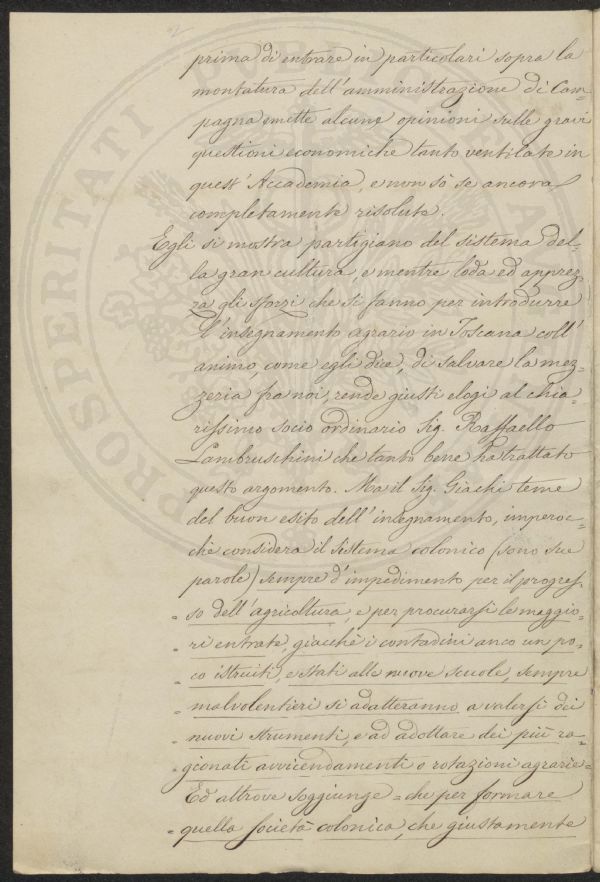 prima di entrare in particolari sopra la
montatura dell'amministrazione di Cam=
pagna emette alcune opinioni sulle gravi
questioni economiche tanto ventilate in
quest'Accademia, e non sò se ancora
completamente risolute.
Egli si mostra partigiano del sistema del=
la gran cultura, e mentre loda ed apprez=
za gli sforzi che si fanno per introdurre
l'insegnamento agrario in Toscana coll'
animo, come egli dice, di salvare la mez=
zeria fra noi, rende giusti elogi al chia=
rissimo socio ordinario Sig. Raffaello
Lambruschini che tanto bene ha trattato
questo argomento. Ma il Sig. Giachi teme
del buon esito dell'insegnamento, imperoc=
chè considera il sistema colonico (sono sue
parole) sempre d'impedimento per il progres=
= so dell'agricoltura, e per procurarsi le maggio=
= ri entrate, giacchè i contadini anco un po=
= co istruiti, e stati alle nuove scuole, sempre
= malvolentieri si adatteranno a valersi dei
= nuovi strumenti, e ad adottare dei più ra=
= gionati avvicendamenti o rotazioni agrarie=
Ed altrove soggiunge = che per formare
= quella società colonica, che giustamente
PROSPERITATI